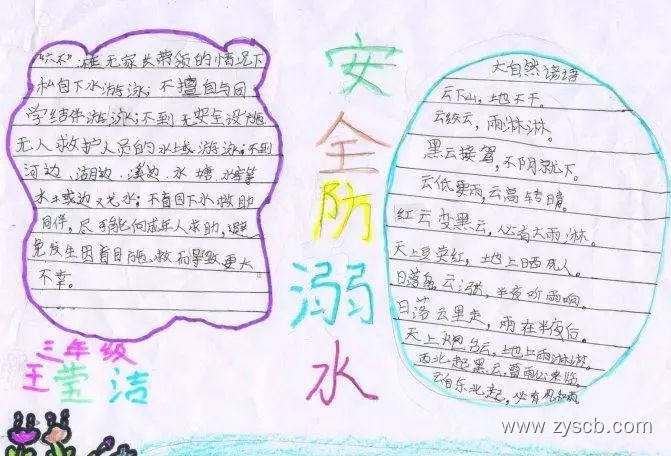 "六不":在无家长带领的情况下
私自下水游泳;不擅自与同
学结伴游泳;不到无安全设施
无人救护人员的水域游泳;不到
河边、湖边、溪边、水塘、水库等
水土或边玩水;不盲目下水救助
同伴,尽可能向成年人求助,避
免发生因盲目施救而导致更大
不幸。
三年级
王莹洁
安全防溺水
大自然谚语
云下山,地不干。
云绞云,雨淋淋。
黑云接驾,不阴就下。
云低要雨,云高转晴。
红云变黑云,必有大雨淋。
天上豆荚红,地上晒死人。
日落乌云涨,半夜听雨响。
日落云里走,雨在半夜后。
天上乌云,地上雨淋淋。
西北起黑云,雷雨必来临。
云自东北起,必有风和雨
www.zyscb.com